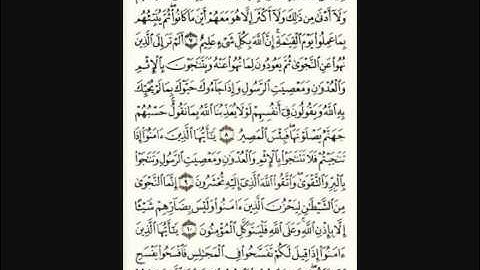 وَلَآ أَدْنَىٰ مِن ذَٰلِكَ وَلَآ أَكْثَرَ إِلَّا هُوَ مَعَهُمْ أَيْنَ مَا كَانُوا۟ ۖ ثُمَّ يُنَبِّئُهُم
بِمَا عَمِلُوا۟ يَوْمَ ٱلْقِيَٰمَةِ ۚ إِنَّ ٱللَّهَ بِكُلِّ شَىْءٍ عَلِيمٌ ٧ أَلَمْ تَرَ إِلَى ٱلَّذِينَ
نُهُوا۟ عَنِ ٱلنَّجْوَىٰ ثُمَّ يَعُودُونَ لِمَا نُهُوا۟ عَنْهُ وَيَتَنَٰجَوْنَ بِٱلْإِثْمِ
وَٱلْعُدْوَٰنِ وَمَعْصِيَتِ ٱلرَّسُولِ وَإِذَا جَآءُوكَ حَيَّوْكَ بِمَا لَمْ يُحَيِّكَ
بِهِ ٱللَّهُ وَيَقُولُونَ فِىٓ أَنفُسِهِمْ لَوْلَا يُعَذِّبُنَا ٱللَّهُ بِمَا نَقُولُ ۚ حَسْبُهُمْ
جَهَنَّمُ يَصْلَوْنَهَا ۖ فَبِئْسَ ٱلْمَصِيرُ ٨ يَٰٓأَيُّهَا ٱلَّذِينَ ءَامَنُوٓا۟ إِذَا
تَنَٰجَيْتُمْ فَلَا تَتَنَٰجَوْا۟ بِٱلْإِثْمِ وَٱلْعُدْوَٰنِ وَمَعْصِيَتِ ٱلرَّسُولِ وَتَنَٰجَوْا۟
بِٱلْبِرِّ وَٱلتَّقْوَىٰ ۖ وَٱتَّقُوا۟ ٱللَّهَ ٱلَّذِىٓ إِلَيْهِ تُحْشَرُونَ ٩ إِنَّمَا ٱلنَّجْوَىٰ
مِنَ ٱلشَّيْطَٰنِ لِيَحْزُنَ ٱلَّذِينَ ءَامَنُوا۟ وَلَيْسَ بِضَآرِّهِمْ شَيْـًٔا
إِلَّا بِإِذْنِ ٱللَّهِ ۚ وَعَلَى ٱللَّهِ فَلْيَتَوَكَّلِ ٱلْمُؤْمِنُونَ ١٠ يَٰٓأَيُّهَا ٱلَّذِينَ
ءَامَنُوٓا۟ إِذَا قِيلَ لَكُمْ تَفَسَّحُوا۟ فِى ٱلْمَجَٰلِسِ فَٱفْسَحُوا۟ يَفْسَحِ